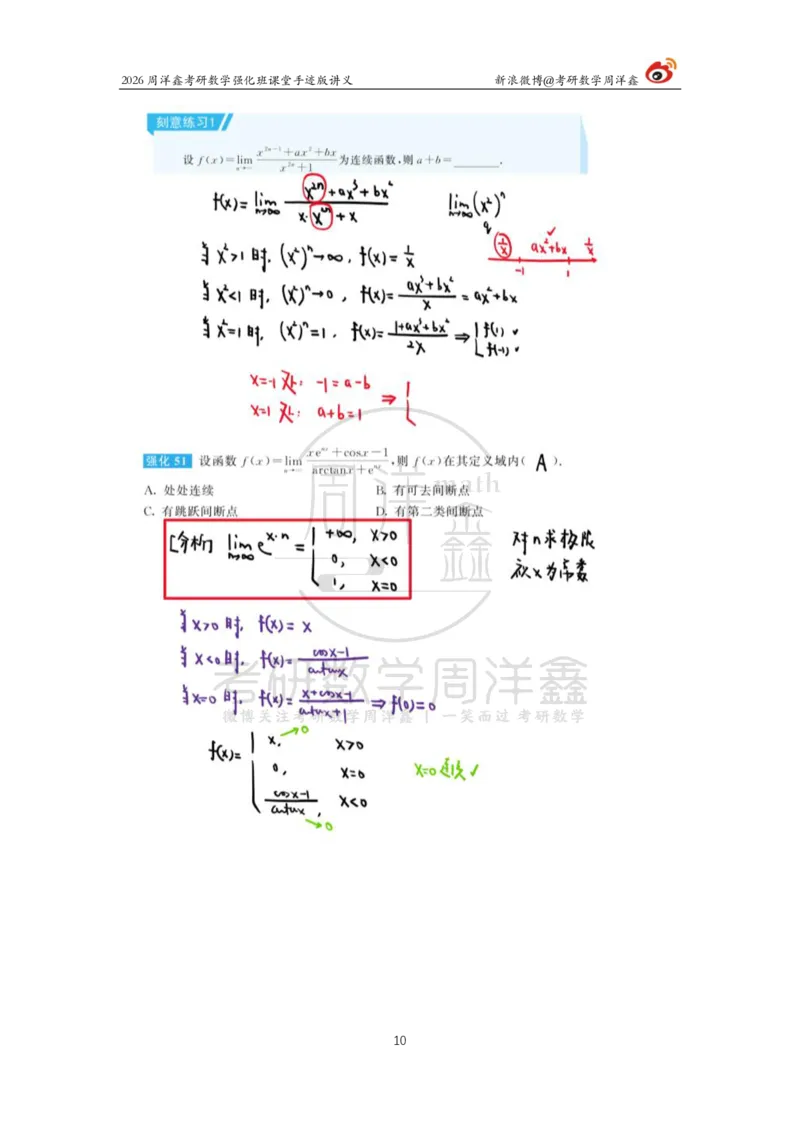 2026周洋鑫考研数学强化班课堂手迹版讲义 新浪微博@考研数学周洋鑫
刻意练习1
设 f(x)=lim_{n→∞} (x^{2n-1}+ax^2+bx)/(x^{2n}+1) 为连续函数,则 a+b=______.
f(x)=lim_{n→∞} (x^{2n}+ax^3+bx^2)/(x·x^{2n}+x) lim_{n→∞}(x^2)^n
q
1/x ax^2+bx 1/x
-1 1
当 x^2>1 时, (x^2)^n→∞, f(x)=1/x
当 x^2<1 时, (x^2)^n→0, f(x)=(ax^3+bx^2)/x=ax^2+bx
当 x^2=1 时, (x^2)^n=1, f(x)=(1+ax^3+bx^2)/(2x) ⇒ { f(1) ✓
f(-1) ✓
x=-1 处: -1=a-b
x=1 处: a+b=1 ⇒ {
强化 51 设函数 f(x)=lim_{n→∞} (xe^{nx}+cosx-1)/(arctanx+e^{nx}),则 f(x)在其定义域内( A ).
A. 处处连续 B. 有可去间断点
C. 有跳跃间断点 D. 有第二类间断点
[分析] lim_{n→∞} e^{x·n} = { +∞, x>0
0, x<0
1, x=0
对n求极限
视x为常数
当 x>0 时, f(x)=x
当 x<0 时, f(x)=(cosx-1)/arctanx
当 x=0 时, f(x)=(x+cosx-1)/(arctanx+1) ⇒ f(0)=0
f(x)= { x, →0 x>0
0, x=0 x=0 连续 ✓
(cosx-1)/arctanx, →0 x<0
周洋鑫
math
考研数学周洋鑫
微博关注考研数学周洋鑫 | 一笑而过 考研数学
10